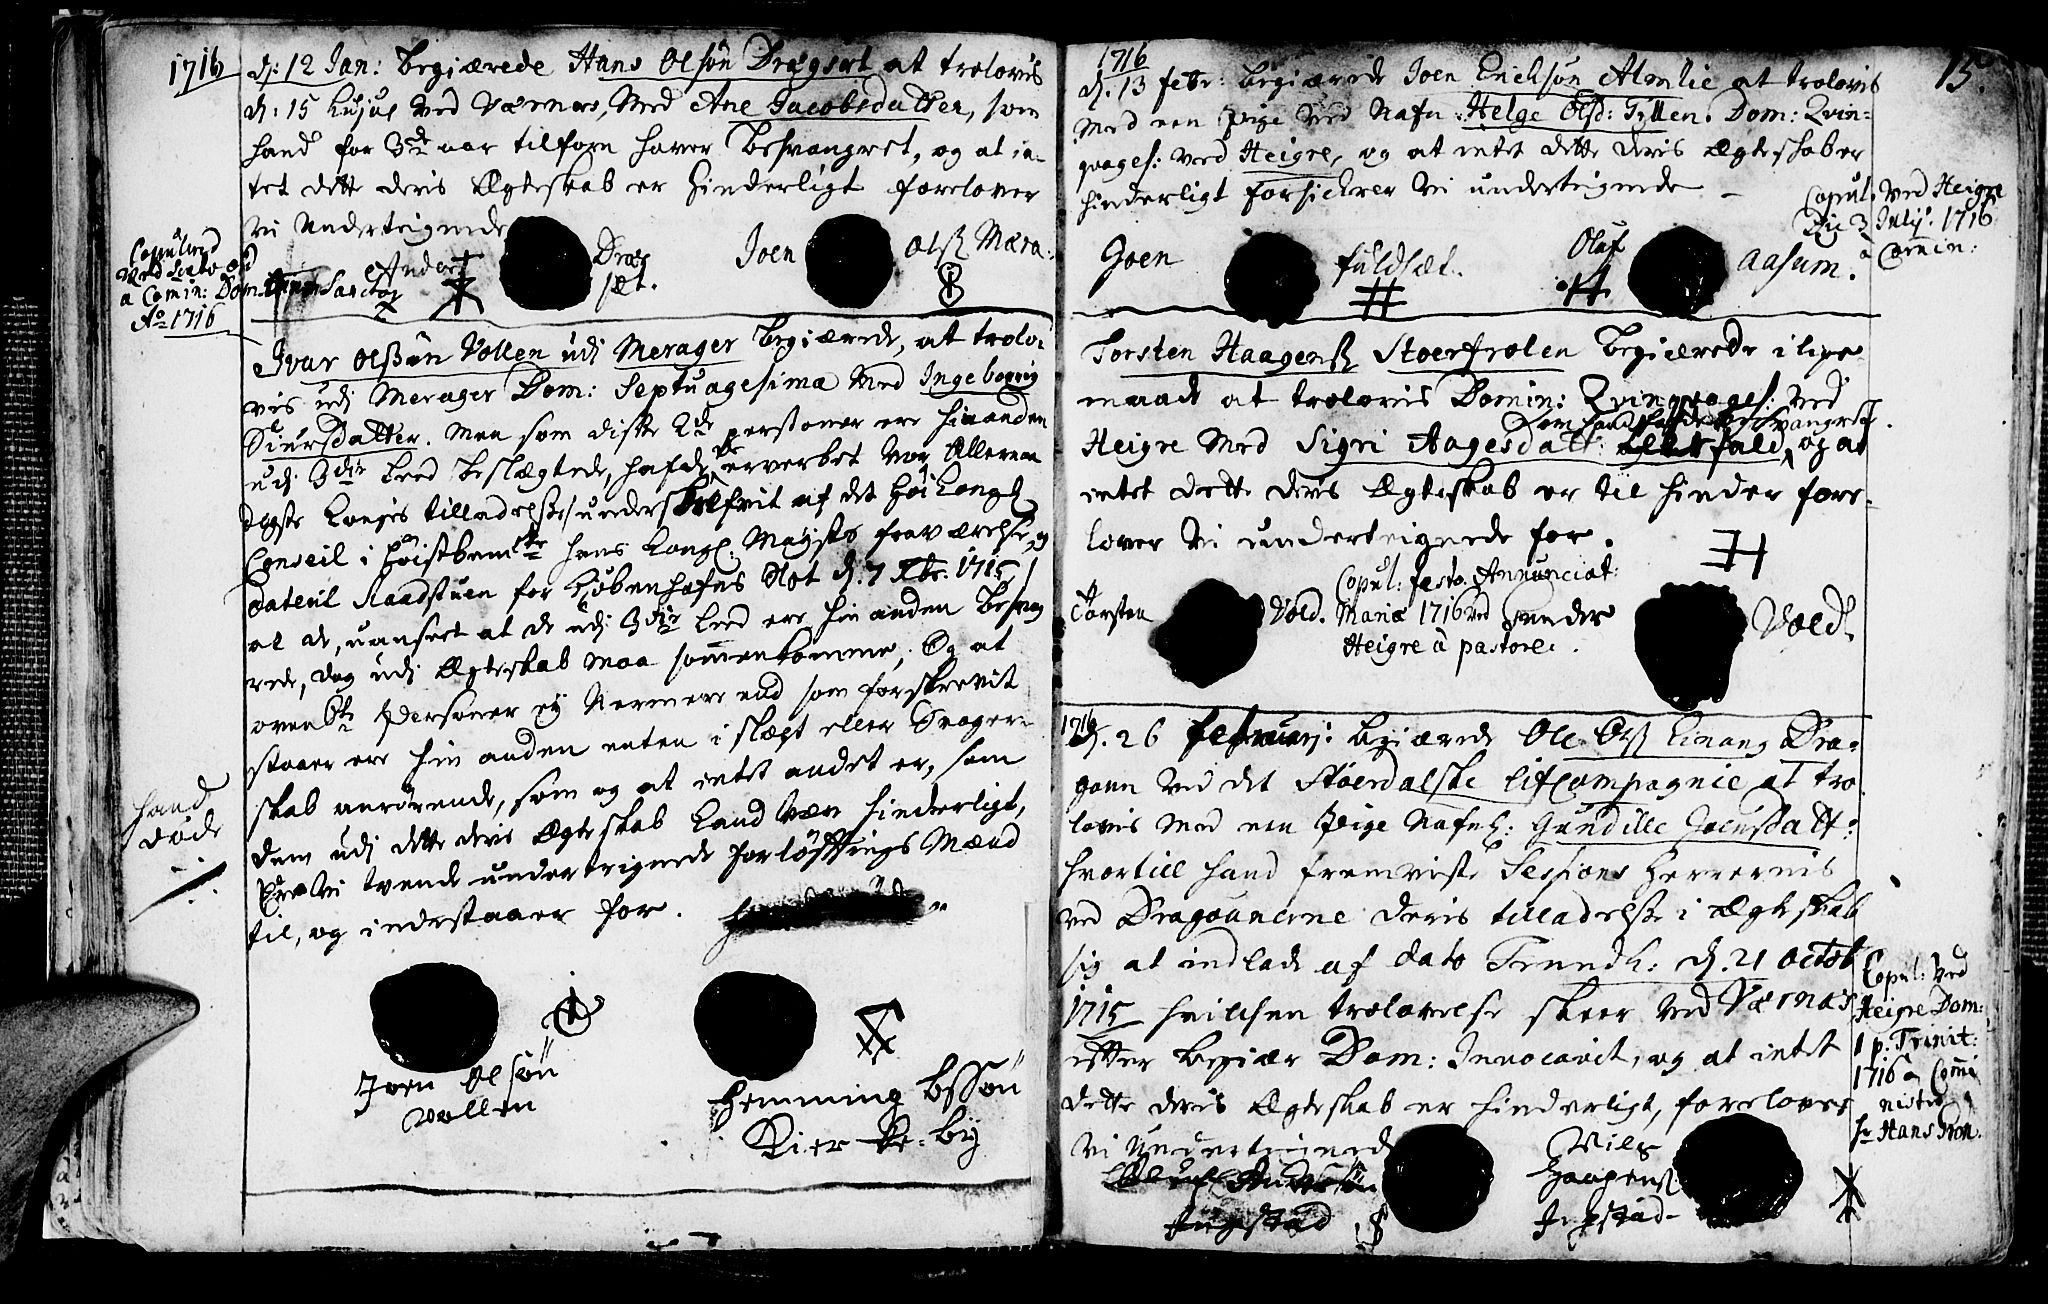 1716
d: 12 Jan: begiærede Hans Olsön Drøgset at trolovis
d: 15 hujus ved Værnæs, Med Ane Jacobsdatter, som
hand for 3de aar tilforn haver besvangret, og at in-
tet dette deris Ægteskab er hinderligt forelover
vi Underteignede
Copulered
à Comin: Dom.
Ao 1716
Anders
Drøg
sæt.
Joen
Olsß Mæra:
Ivar Olssøn Vollen udj Merager begiærede, at trolo-
vis udj Merager Dom: Septuagesima Med Ingeborrig
Siursdatter. Men som disse 2de personer ere hinanden
udj 3die Leed beslægtede, hafde de erverbet vor Allernaa
digste Konges tilladelse underskrefvit af det høi Kongl
Conseil i høistbemte hans Kongl: Mayts fraværelse, og
daterit Raadstuen for Kiøbenhafns Slot d. 7 Xbr. 1715,
at de, uanseet at de udj 3die Leed ere hin anden besvog
rede, dog udj Ægteskab maa sammenkomme; Og at
ovenbte Personer ej nermere end som forskrevit
staaer ere hin anden enten i slægt eller Svoger-
skab anrörende, som og at intet andet er, som
dem udj dette deris Ægteskab kand være hinderligt,
svare vi tvende underteignede forlöftnings Mænd
til, og indestaaer for.
hand
döde
Joen Olsön
Vollen
Hemming
Kierke: by
15.
1716
d. 13 febr: begiærede Joen Erichsön Almlie at trolovis
Med een Pige ved Nafn Helge Olsd: Tyllen. Dom: Qvin-
qvages: ved Heigre, og at intet dette deris Ægteskab er
hinderligt forsichrer vi underteignede
Copul: ved Heigre
Die 3 Julij: 1716
à Comin:
Joen
fuldsæt.
Oluf
Aasum.
Torsten Haagensß Stoerfloten begiærede i lige-
maade at trolovis Domin: Qvinqvages: ved
som hand hafde besvangret
Heigre Med Sigri Aagesdatt: og at
intet dette deris Ægteskab er til hinder fore-
lover vi underteignede for.
Torsten
Vold.
Copul: festo Annunciat:
Mariæ 1716 ved
Heigre à pastore.
Vold.
1716
d. 26 februarj: begiærede Ole Olsß Einang Dra-
goun ved det Støerdalske LifCompagnie at tro-
lovis med een Pige Nafnl: Gundille Joensdatt:
hvortill hand fremviste Sessions Herrernis
ved Dragounerne deris tilladelse i Ægteskab
sig at indlade af dato Trundh: d. 21 octob
1715 hvilchen trolovelse skeer ved Værnæs
efter begiær Dom: Invocavit, og at intet
dette deris Ægteskab er hinderligt, forelover
vi Underteignede
Copul: ved
Heigre Dom:
1 p. Trinit:
1716 a Comi
nistro
hr Hans Iron.
Nils
Haagensß